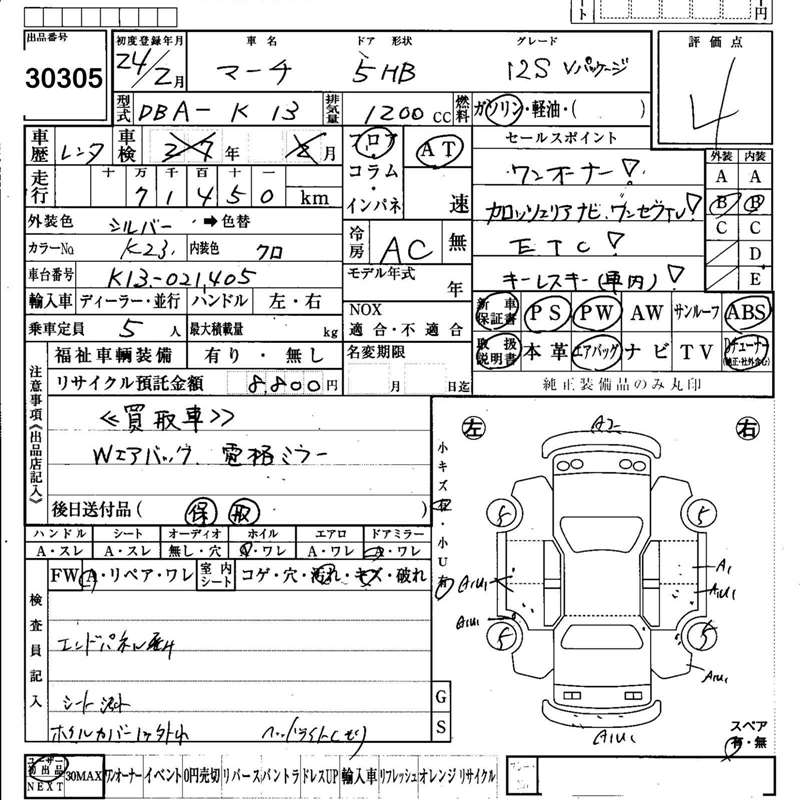 出品番号
30305
初度登録年月
24/2月
車名
マーチ
ドア 形状
5HB
グレード
12S Vパッケージ
評価点
4
型式
DBA-K13
排気量
1200cc
燃料
ガソリン・軽油・( )
車歴
レンタ
車検
27年2月
フロア
コラム
・
インパネ
AT
速
セールスポイント
ワンオーナー!
カロッツェリアナビ、ワンセグTV!
ETC!
キーレスキー(車内)!
外装 内装
A A
B B
C C
D
E
走行
十 万 千 百 十 一
71450 km
外装色
シルバー ➡色替
カラーNo
K23
内装色
クロ
冷房
AC 無
車台番号
K13-021405
モデル年式
年
輸入車 ディーラー・並行 ハンドル 左・右
NOX
適合・不適合
乗車定員 5人 最大積載量 kg
新車保証書 PS PW AW サンルーフ ABS
取扱説明書 本革 エアバッグ ナビ TV Dチューナー
純正装備品のみ丸印
福祉車輌装備 有り・無し
名変期限
月 日迄
リサイクル預託金額 8,800円
注意事項《出品店記入》
≪買取車≫
Wエアバッグ、電格ミラー
後日送付品( 保 取 )
ハンドル シート オーディオ ホイル エアロ ドアミラー
A・スレ A・スレ 無し・穴 A・ワレ A・ワレ A・ワレ
FW A・リペア・ワレ 室内シート コゲ・穴・汚れ・キズ・破れ
検査員記入
エンドパネル
シート
ホイルカバー
G
S
小キズ有・小U有
左 右
A2
5 5
A1U1 A1
A1U1
A1U1
5 5
A1U1
A1U1
スペア
有・無
ユーザー
初出品
NEXT
30MAX ワンオーナー イベント 0円売切 リバース パントラ ドレスUP 輸入車 リフレッシュ オレンジ リサイクル